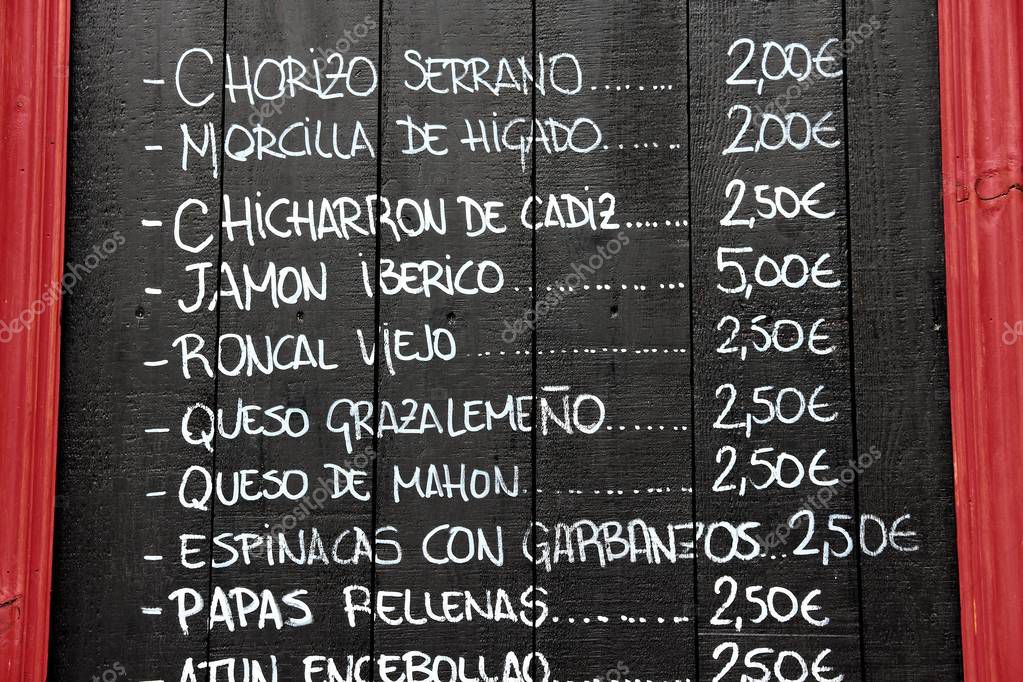 - CHORIZO SERRANO........ 2,00€
- MORCILLA DE HIGADO....... 2,00€
- CHICHARRON DE CADIZ....... 2,50€
- JAMON IBERICO............... 5,00€
- RONCAL VIEJO................... 2,50€
- QUESO GRAZALEMEÑO....... 2,50€
- QUESO DE MAHON............... 2,50€
- ESPINACAS CON GARBANZOS...2,50€
- PAPAS RELLENAS............ 2,50€
- ATUN ENCEBOLLAO............ 2,50€